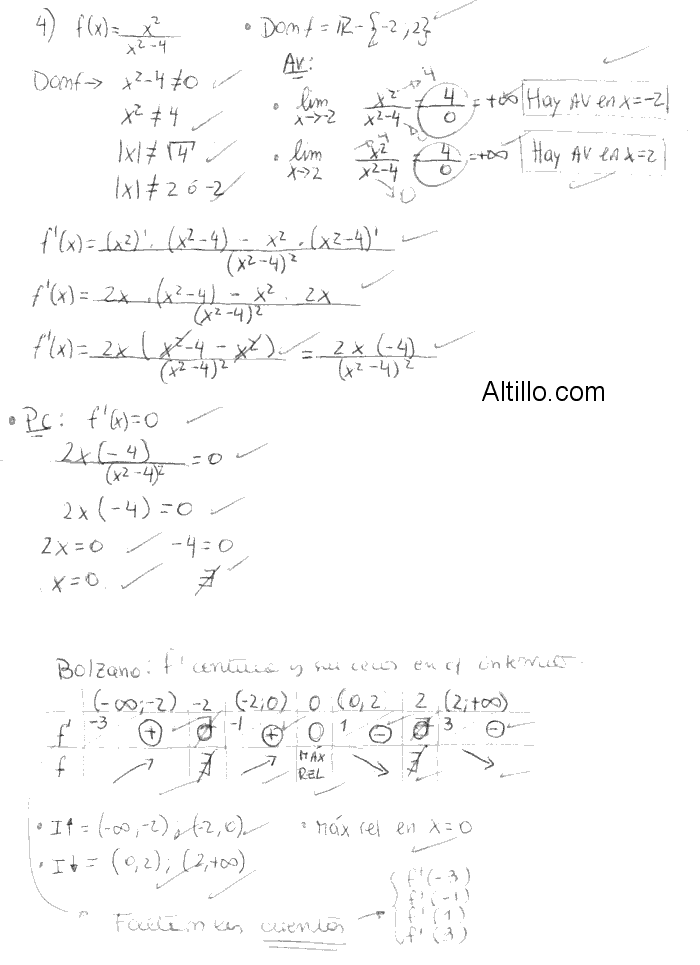 4) f(x)= x²/(x²-4) • Domf = ℝ - {-2,2}
Domf→ x²-4≠0
x²≠4
|x|≠√4
|x|≠2 ó -2
AV:
• lim x→-2 x²/(x²-4) = 4/0 = +∞ Hay AV en x=-2
• lim x→2 x²/(x²-4) = 4/0 = +∞ Hay AV en x=2
f'(x)= ((x²)' . (x²-4) - x² . (x²-4)')/(x²-4)²
f'(x)= (2x . (x²-4) - x² . 2x)/(x²-4)²
f'(x)= 2x (x²-4-x²)/(x²-4)² = 2x(-4)/(x²-4)²
Altillo.com
• PC: f'(x)=0
2x(-4)/(x²-4)² =0
2x(-4)=0
2x=0 -4=0
x=0 ∄
Bolzano: f' continua y sin ceros en el intervalo.
(-∞;-2) -2 (-2;0) 0 (0,2 2 (2;+∞)
f' -3 + ∄ -1 + 0 1 - ∄ 3 -
f ↗ ∄ ↗ MÁX REL ↘ ∄ ↘
• I↑ = (-∞,-2) ; (-2,0) • máx rel en x=0
• I↓ = (0,2) ; (2,+∞)
Faltan las cuentas → { f'(-3)
f'(-1)
f'(1)
f'(3)